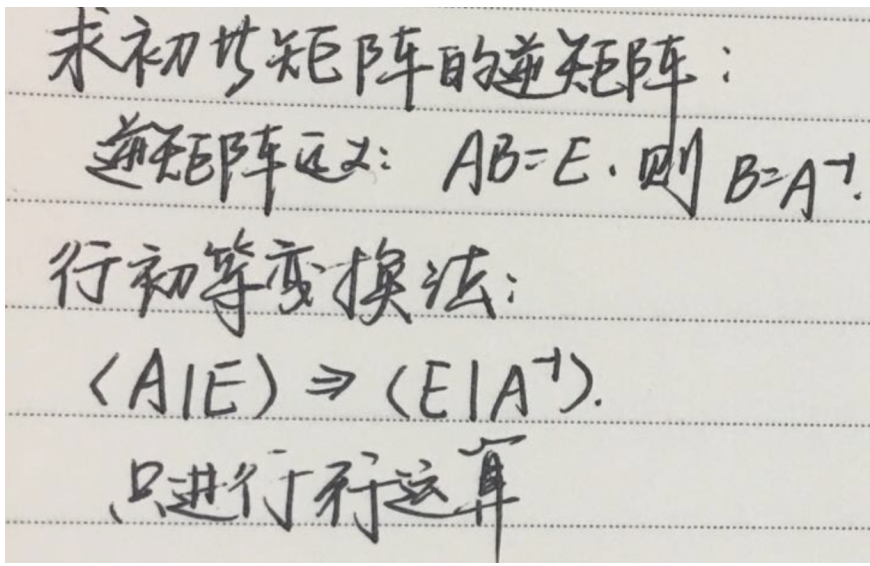 求初等矩阵的逆矩阵:
逆矩阵定义: AB=E. 则 B=A⁻¹.
行初等变换法:
(A|E) ⇒ (E|A⁻¹).
只进行行运算